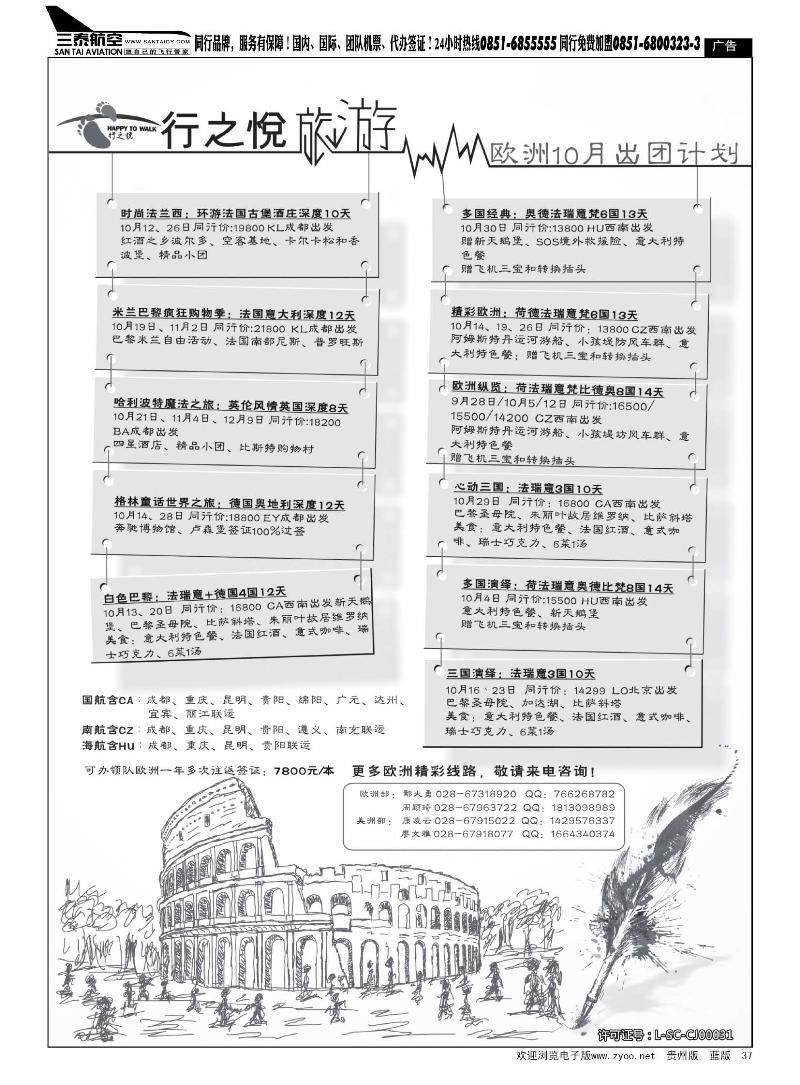 三泰航空 WWW.SANTAIGY.COM
SAN TAI AVIATION 做自己的飞行管家
同行品牌，服务有保障！国内、国际、团队机票、代办签证！24小时热线0851-6855555 同行免费加盟0851-6800323-3
广告
HAPPY TO WALK
行之悦
行之悦旅游
欧洲10月出团计划
时尚法兰西：环游法国古堡酒庄深度10天
10月12、26日 同行价:19800 KL成都出发
红酒之乡波尔多、空客基地、卡尔卡松和香
波堡、精品小团
米兰巴黎疯狂购物季：法国意大利深度12天
10月19日、11月2日 同行价:21800 KL成都出发
巴黎米兰自由活动、法国南部尼斯、普罗旺斯
哈利波特魔法之旅：英伦风情英国深度8天
10月21日、11月4日、12月9日 同行价:18200
BA成都出发
四星酒店、精品小团、比斯特购物村
格林童话世界之旅：德国奥地利深度12天
10月14、28日 同行价:18800 EY成都出发
奔驰博物馆、卢森堡签证100%过签
白色巴黎：法瑞意+德国4国12天
10月13、20日 同行价：16800 CA西南出发新天鹅
堡、巴黎圣母院、比萨斜塔、朱丽叶故居维罗纳
美食：意大利特色餐、法国红酒、意式咖啡、瑞
士巧克力、6菜1汤
多国经典：奥德法瑞意梵6国13天
10月30日 同行价:13800 HU西南出发
赠新天鹅堡、SOS境外救援险、意大利特
色餐
赠飞机三宝和转换插头
精彩欧洲：荷德法瑞意梵6国13天
10月14、19、26日 同行价：13800 CZ西南出发
阿姆斯特丹运河游船、小孩堤防风车群、意
大利特色餐；赠飞机三宝和转换插头
欧洲纵览：荷法瑞意梵比德奥8国14天
9月28日/10月5/12日 同行价:16500/
15500/14200 CZ西南出发
阿姆斯特丹运河游船、小孩堤坊风车群、意
大利特色餐
赠飞机三宝和转换插头
心动三国：法瑞意3国10天
10月29日 同行价：16800 CA西南出发
巴黎圣母院、朱丽叶故居维罗纳、比萨斜塔
美食：意大利特色餐、法国红酒、意式咖
啡、瑞士巧克力、6菜1汤
多国演绎：荷法瑞意奥德比梵8国14天
10月4日 同行价:15500 HU西南出发
意大利特色餐、新天鹅堡
赠飞机三宝和转换插头
三国演绎：法瑞意3国10天
10月16、23日 同行价：14299 LO北京出发
巴黎圣母院、加达湖、比萨斜塔
美食：意大利特色餐、法国红酒、意式咖啡、
瑞士巧克力、6菜1汤
国航含CA：成都、重庆、昆明、贵阳、绵阳、广元、达州、
宜宾、丽江联运
南航含CZ：成都、重庆、昆明、贵阳、遵义、南充联运
海航含HU：成都、重庆、昆明、贵阳联运
可办领队欧洲一年多次往返签证：7800元/本 更多欧洲精彩线路，敬请来电咨询！
欧洲部：鄢大勇 028-67318920 QQ：766268782
周颖琦 028-67963722 QQ：1813098989
美洲部：廖凌云 028-67915022 QQ：1429576337
廖文雅 028-67918077 QQ：1664340374
许可证号：L-SC-CJ00031
欢迎浏览电子版www.zyoo.net 贵州版 蓝版 37